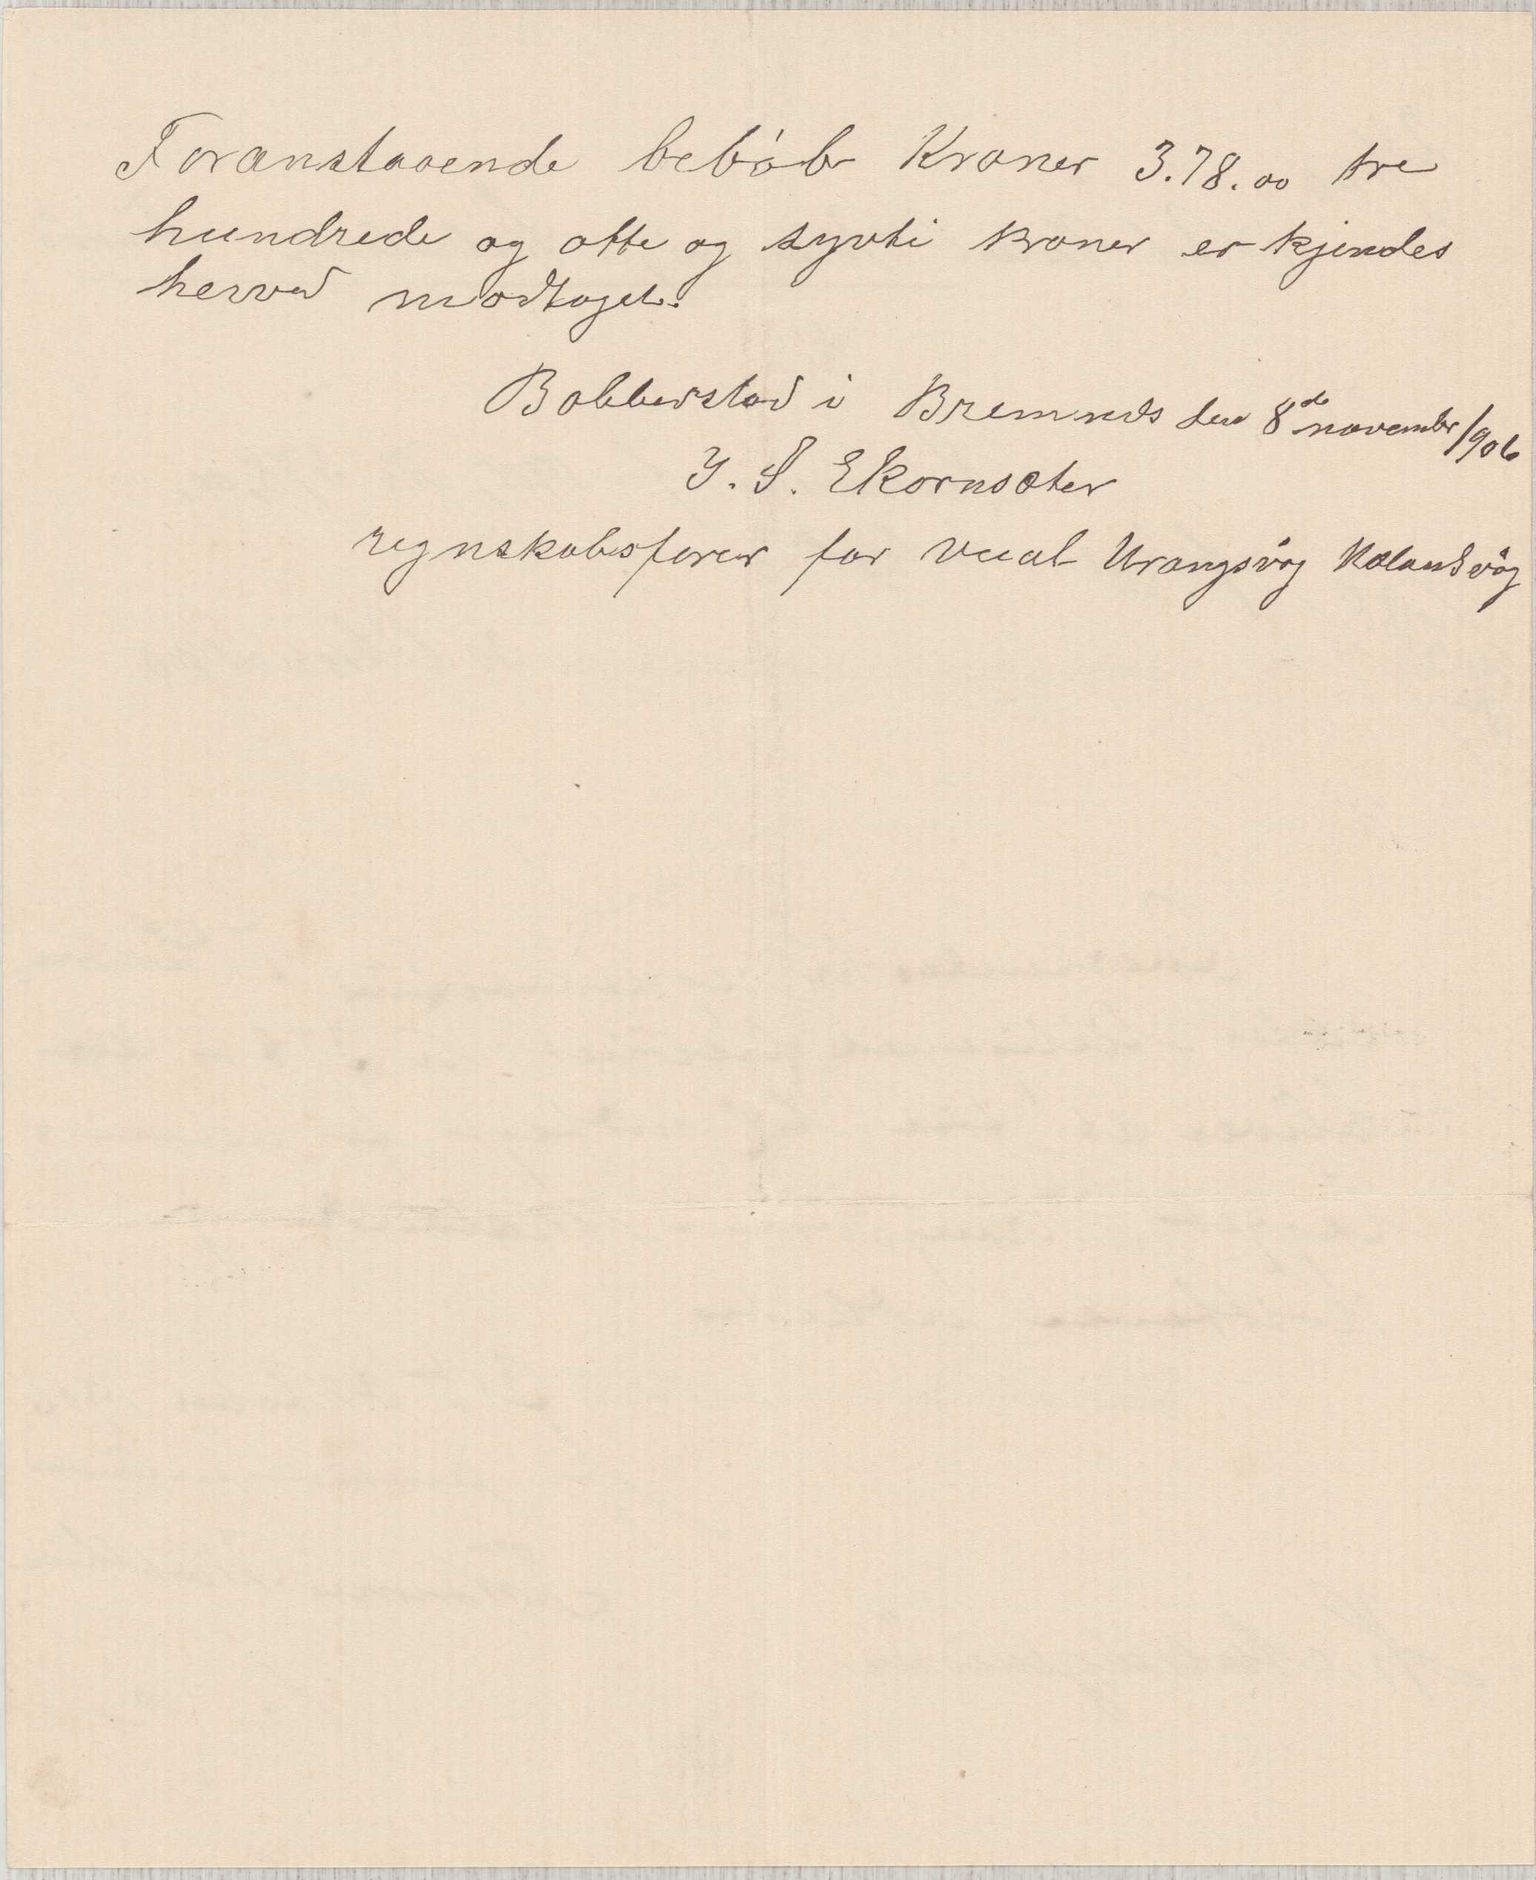 Foranstaaende beløb Kroner 3.78.00 tre
hundrede og otte og syvti kroner er kjendes
herved modtaget.
Bobberstad i Bremnes den 8de november 1906
J. S. Ekornsæter
regnskabsfører for veial Urangsvåg